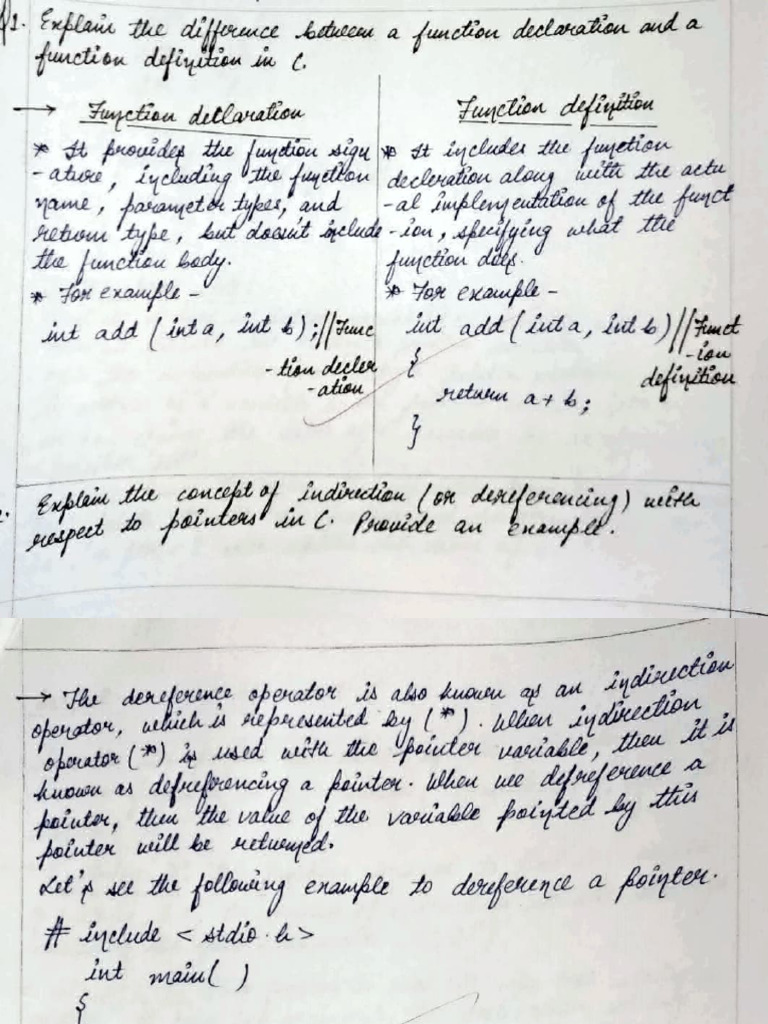 Q1. Explain the difference between a function declaration and a
function definition in C.
→ Function detlaration
* It provides the function sign
-ature, including the function
name, parameter types, and
return type, but doesn't include
the function body.
* For example -
int add (int a, int b); // Func
-tion decler
-ation
Function definition
* It includes the function
decleration along with the actu
-al implementation of the funct
-ion, specifying what the
function does.
* For example -
int add (int a, int b) // Funct
-ion
definition
{
return a + b;
}
2. Explain the concept of indirection (or dereferencing) with
respect to pointers in C. Provide an example.
→ The dereference operator is also known as an indirection
operator, which is represented by (*). When indirection
operator (*) is used with the pointer variable, then it is
known as defreferencing a pointer. When we defreference a
pointer, then the value of the variable pointed by this
pointer will be returned.
Let's see the following example to dereference a pointer.
# include < stdio.h>
int main( )
{